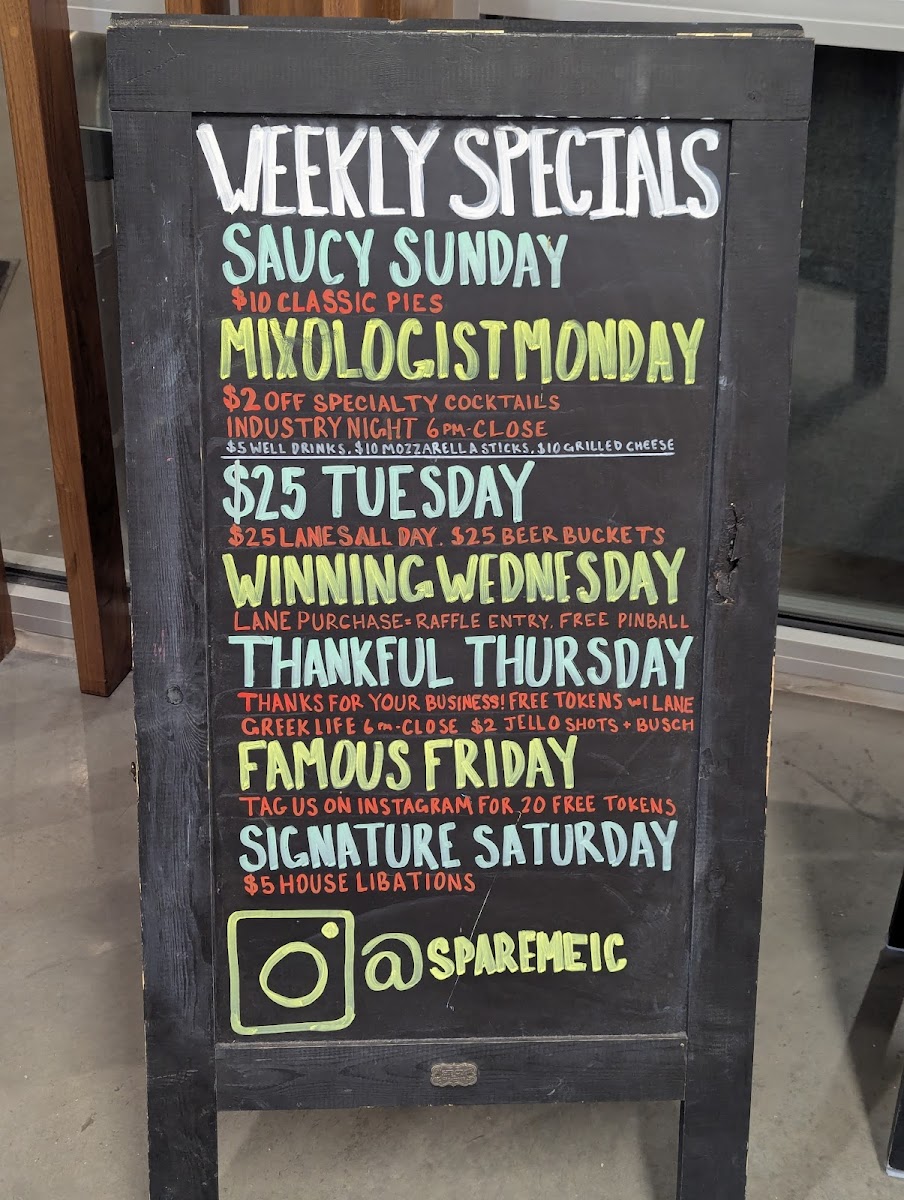 WEEKLY SPECIALS
SAUCY SUNDAY
$10 CLASSIC PIES
MIXOLOGIST MONDAY
$2 OFF SPECIALTY COCKTAILS
INDUSTRY NIGHT 6PM-CLOSE
$5 WELL DRINKS, $10 MOZZARELLA STICKS, $10 GRILLED CHEESE
$25 TUESDAY
$25 LANES ALL DAY. $25 BEER BUCKETS
WINNING WEDNESDAY
LANE PURCHASE = RAFFLE ENTRY. FREE PINBALL
THANKFUL THURSDAY
THANKS FOR YOUR BUSINESS! FREE TOKENS W/ LANE
GREEK LIFE 6PM-CLOSE $2 JELLO SHOTS + BUSCH
FAMOUS FRIDAY
TAG US ON INSTAGRAM FOR 20 FREE TOKENS
SIGNATURE SATURDAY
$5 HOUSE LIBATIONS
@SPAREMEIC